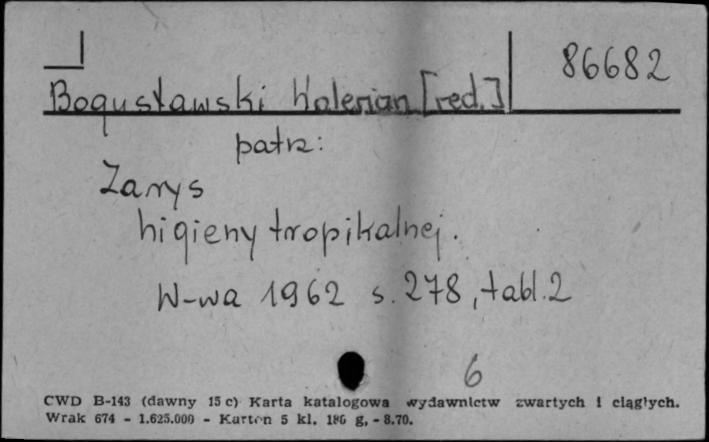 86682
Bogusławski Walerian [red.]
patrz:
Zarys
higieny tropikalnej.
W-wa 1962 s. 278, tabl. 2
6
CWD B-143 (dawny 15 c) Karta katalogowa wydawnictw zwartych i ciągłych.
Wrak 674 - 1.625.000 - Karton 5 kl. 180 g, - 8.70.